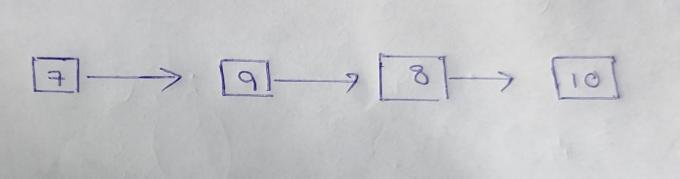 7 9 8 10